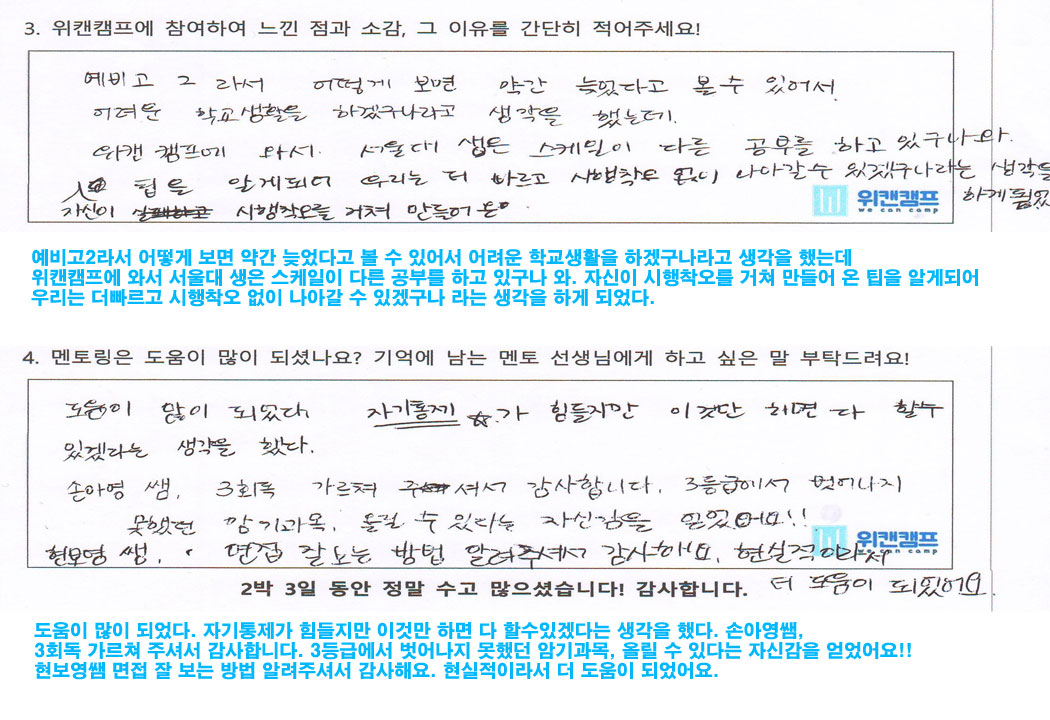 3. 위캔캠프에 참여하여 느낀 점과 소감, 그 이유를 간단히 적어주세요!
예비고 2 라서 어떻게 보면 약간 늦었다고 볼 수 있어서
어려운 학교생활을 하겠구나라고 생각을 했는데.
위캔 캠프에 와서. 서울대 생은 스케일이 다른 공부를 하고 있구나 와.
팁을 알게되어 우리는 더 빠르고 시행착오 없이 나아갈수 있겠구나라는 생각을
하게 됬었
자신이 시행착오를 거쳐 만들어 온
위캔캠프
we can camp
예비고2라서 어떻게 보면 약간 늦었다고 볼 수 있어서 어려운 학교생활을 하겠구나라고 생각을 했는데
위캔캠프에 와서 서울대 생은 스케일이 다른 공부를 하고 있구나 와. 자신이 시행착오를 거쳐 만들어 온 팁을 알게되어
우리는 더빠르고 시행착오 없이 나아갈 수 있겠구나 라는 생각을 하게 되었다.
4. 멘토링은 도움이 많이 되셨나요? 기억에 남는 멘토 선생님에게 하고 싶은 말 부탁드려요!
도움이 많이 되었다. 자기통제 ☆가 힘들지만 이것만 하면 다 할수
있겠다는 생각을 했다.
손아영 쌤, 3회독 가르쳐 주셔서 감사합니다. 3등급에서 벗어나지
못했던 암기과목, 올릴 수 있다는 자신감을 얻었어요!!
위캔캠프
we can camp
현보영 쌤, 면접 잘 보는 방법 알려주셔서 감사해요. 현실적이라서
더 도움이 되었어요.
2박 3일 동안 정말 수고 많으셨습니다! 감사합니다.
도움이 많이 되었다. 자기통제가 힘들지만 이것만 하면 다 할수있겠다는 생각을 했다. 손아영쌤,
3회독 가르쳐 주셔서 감사합니다. 3등급에서 벗어나지 못했던 암기과목, 올릴 수 있다는 자신감을 얻었어요!!
현보영쌤 면접 잘 보는 방법 알려주셔서 감사해요. 현실적이라서 더 도움이 되었어요.